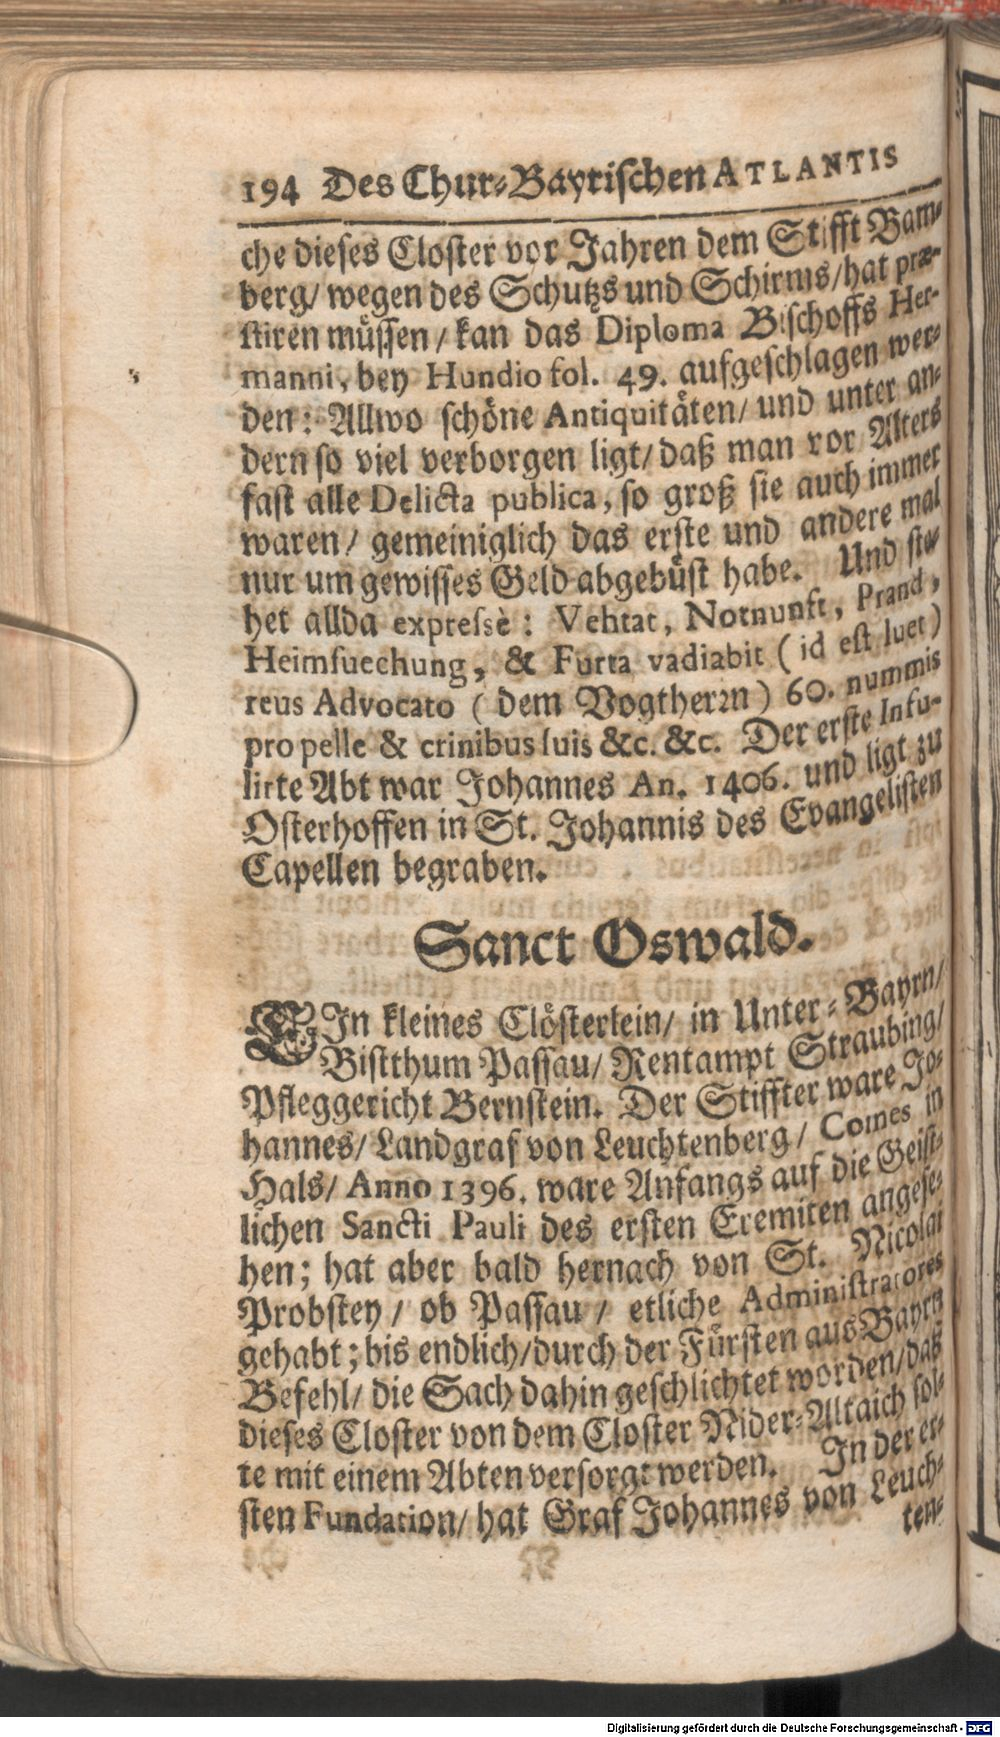 194 Des Chur-Bayrischen ATLANTIS
che dieses Closter vor Jahren dem Stifft Bam-
berg/ wegen des Schutzs und Schirms/ hat præ-
stiren müssen / kan das Diploma Bischoffs Her-
manni, bey Hundio fol. 49. aufgeschlagen wer-
den: Allwo schöne Antiquitäten/ und unter an-
dern so viel verborgen ligt/ daß man vor Alters
fast alle Delicta publica, so groß sie auch immer
waren/ gemeiniglich das erste und andere mal
nur um gewisses Geld abgebüst habe. Und ste-
het allda expressè: Vehtat, Notnunft, Prand,
Heimsuechung, & Furta vadiabit ( id est luet )
reus Advocato ( dem Vogtherrn ) 60. nummis
pro pelle & crinibus suis &c. &c. Der erste Infu-
lirte Abt war Johannes An. 1406. und ligt zu
Osterhoffen in St. Johannis des Evangelisten
Capellen begraben.
Sanct Oswald.
EIn kleines Clösterlein/ in Unter-Bayrn/
Bistthum Passau/ Rentampt Straubing/
Pfleggericht Bernstein. Der Stiffter ware Jo-
hannes/ Landgraf von Leuchtenberg/ Comes in
Hals/ Anno 1396. ware Anfangs auf die Geist-
lichen Sancti Pauli des ersten Eremiten angese-
hen; hat aber bald hernach von St. Nicolai
Probstey / ob Passau / etliche Administratores
gehabt; bis endlich/ durch der Fürsten aus Bayrn
Befehl/ die Sach dahin geschlichtet worden/ daß
dieses Closter von dem Closter Nider-Altaich sol-
te mit einem Abten versorgt werden. In der er-
sten Fundation/ hat Graf Johannes von Leuch-
ten-
Digitalisierung gefördert durch die Deutsche Forschungsgemeinschaft - DFG